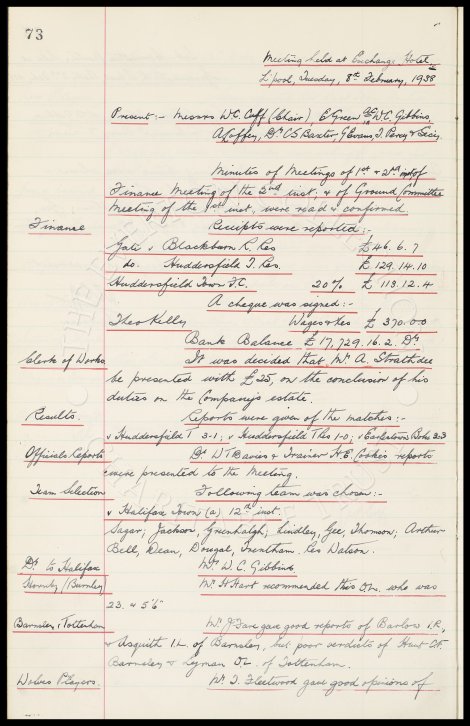 73
Meeting held at Exchange Hotel
L'pool, Tuesday, 8th February, 1938
Present:- Messrs W.C. Cuff (Chair), E. Green, W.C. Gibbins,
A. Coffey, Dr C.S. Baxter, G. Evans, T. Percy & Secy.
Minutes of Meetings of 1st & 2nd inst, of
Finance Meeting of the 2nd inst. & of Ground Committee
Meeting of the 1st inst, were read & confirmed.
Finance
Receipts were reported:-
Gate v Blackburn R. Res £46. 6. 7
do. Huddersfield T. Res. £129. 14. 10
Huddersfield Town F.C. 20% £113. 12. 4
A cheque was signed:-
Theo Kelly Wages &es £370. 0. 0
Bank Balance £17,729. 16. 2. Dr.
Clerk of Works
It was decided that Mr A. Strathdee
be presented with £25, on the conclusion of his
duties on the Company's estate.
Results.
Reports were given of the matches:-
v Huddersfield T 3-1, v Huddersfield T Res 1-0, v Earlestown Bohs 3-3
Officials Reports
Dr W.T. Davies & Trainer H.E. Cooke's reports
were presented to the Meeting.
Team Selection
Following team was chosen:-
v Halifax Town (a) 12th inst.
Sagar, Jackson, Greenhalgh; Lindley, Gee, Thomson; Arthur
Bell, Dean, Dougal, Trentham. Res Watson.
Dr. to Halifax
Mr W.C. Gibbins
Hornby (Burnley
Mr H. Hart recommended this O.L. who was
23. & 5'6"
Barnsley v Tottenham
Mr gave good reports of Barlow I.R,
& Asquith I.L. of Barnsley, but poor verdicts of Hunt C.F.
& Lyman O.L. of Tottenham.
Wolves Players.
Mr T. Fleetwood gave good opinions of